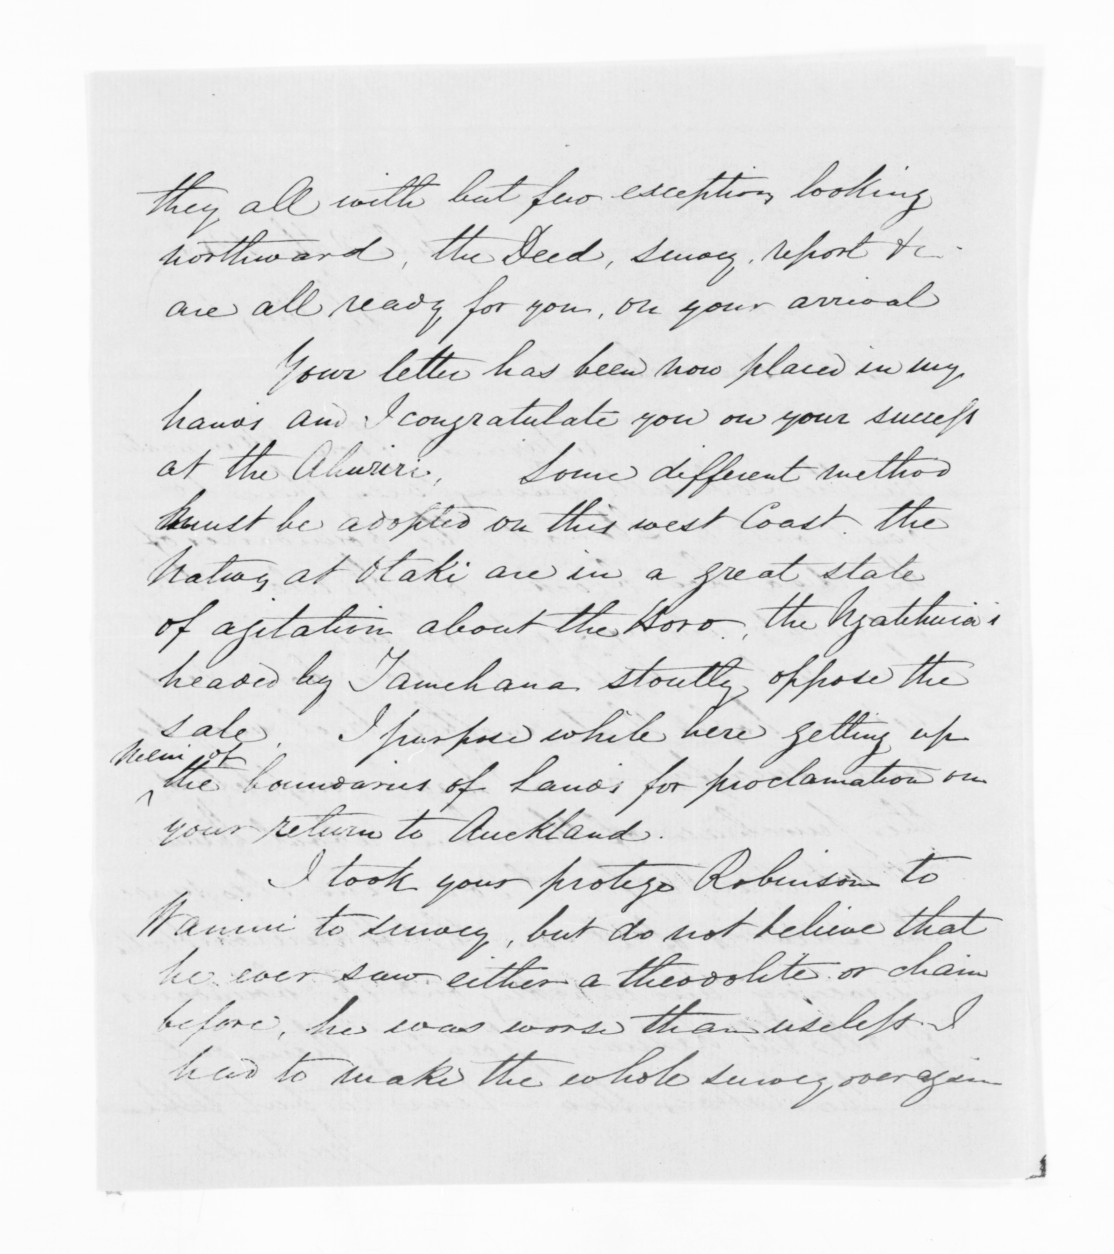 they all with but few exceptions looking
northward, the Deed, survey, report &c
are all ready for you, on your arrival
Your letter has been now placed in my
hands and I congratulate you on your success
at the Ahuriri, Some different method
must be adopted on this west Coast. the
Natives at Otaki are in a great state
of agitation about the Horo, the Ngatihuia's
headed by Tamehana stoutly oppose the
sale. I purpose while here getting up
mem of
the boundaries of Lands for proclamation on
your return to Auckland.
I took your protege Robinson to
Wainui to survey, but do not believe that
he ever saw either a theodolite or chain
before, he was worse than useless I
had to make the whole survey over again